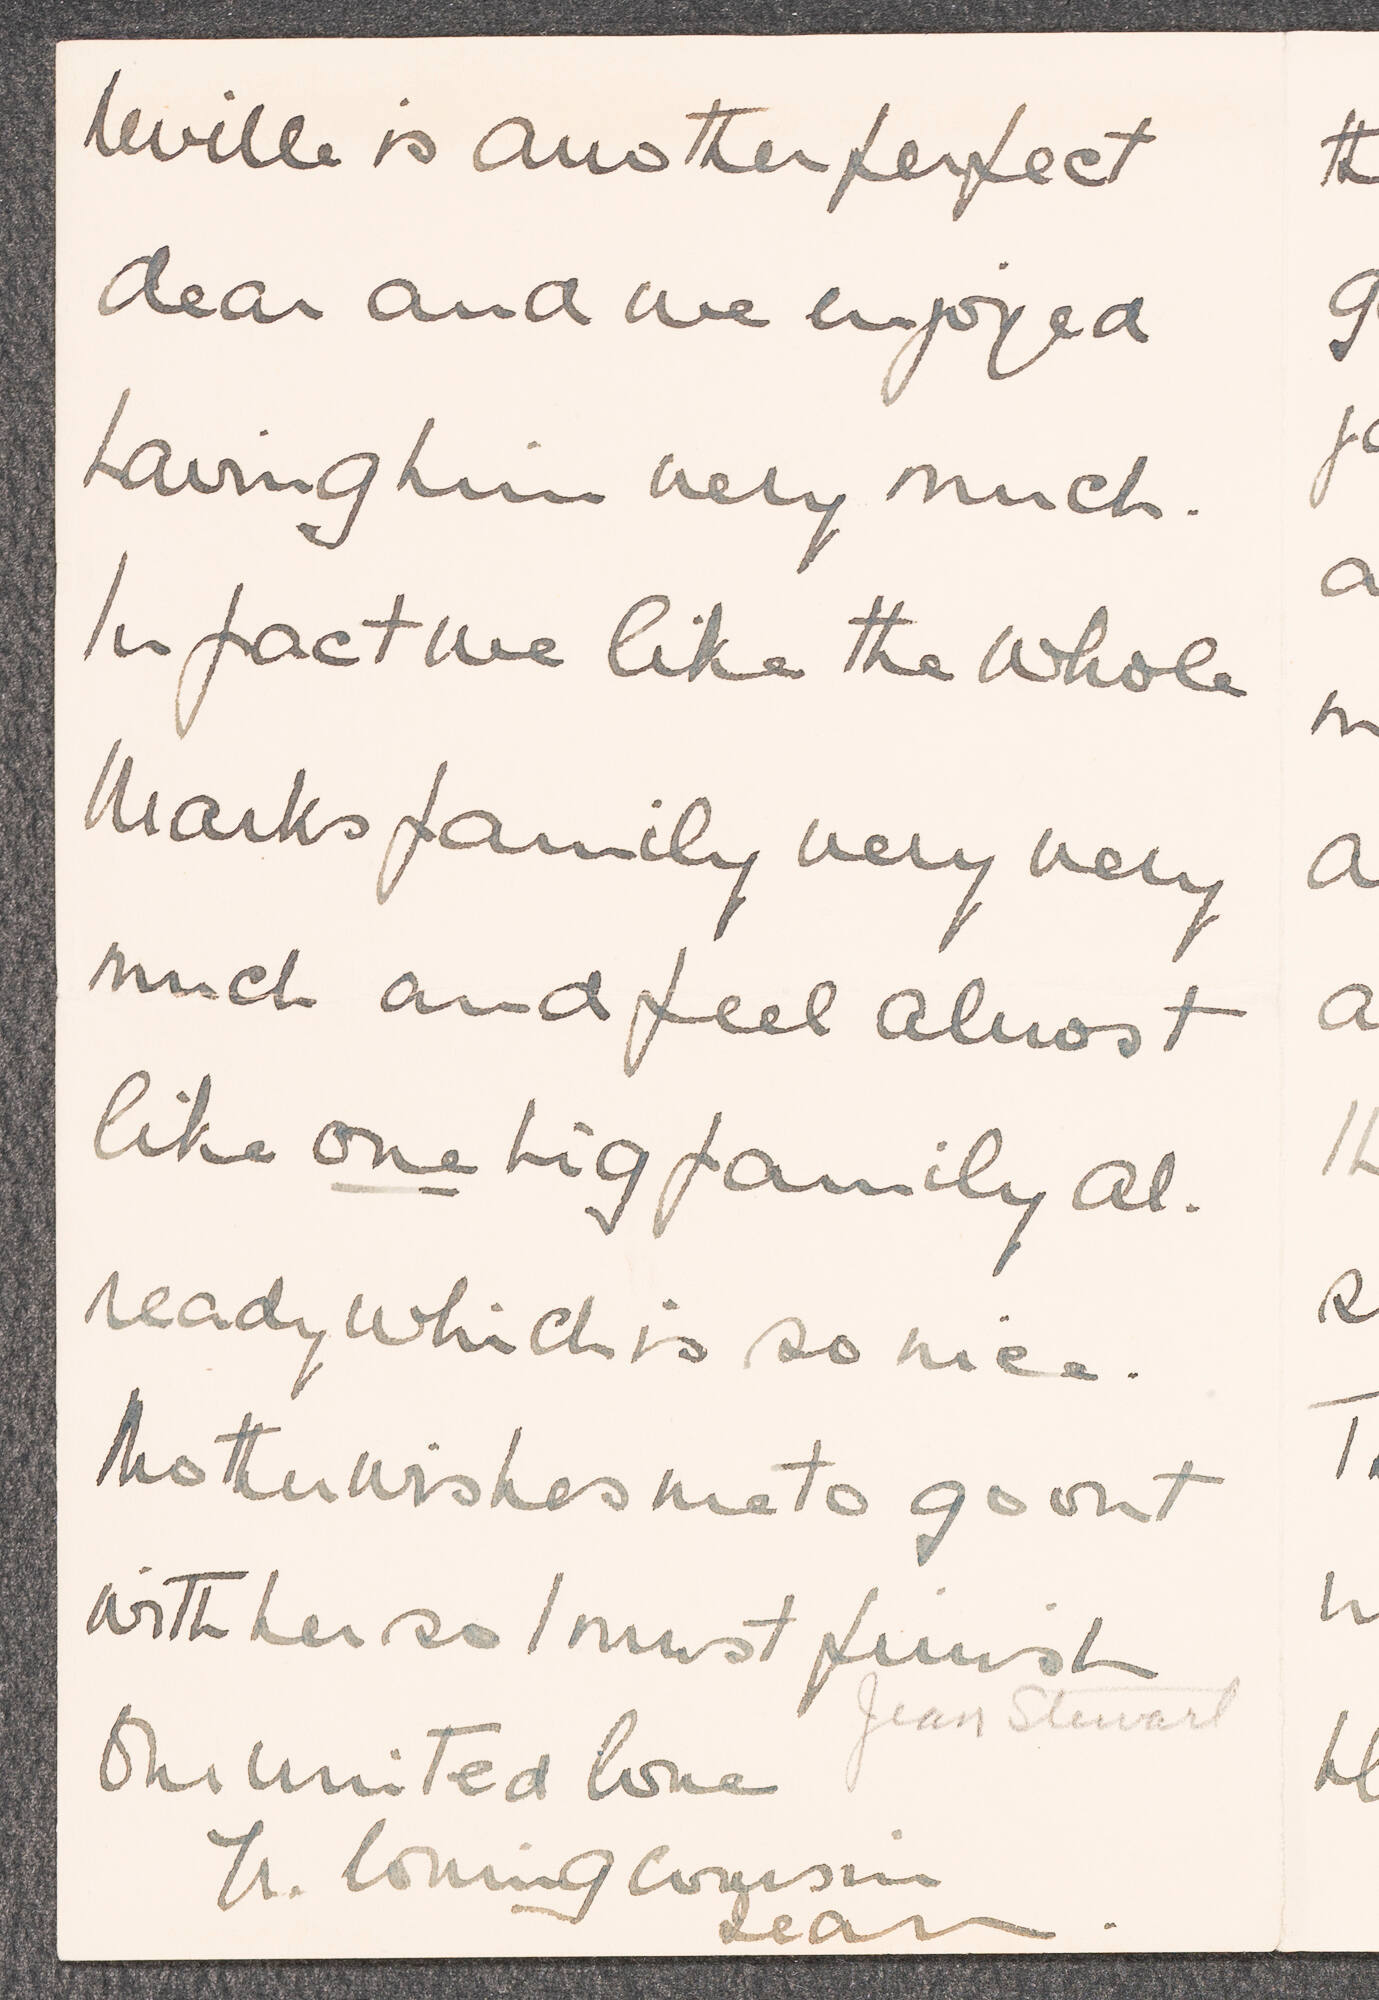 Neville is another perfect
dear and we enjoyed
having him very much.
In fact we like the whole
Marks family very very
much and feel almost
like one big family al.
ready which is so nice.
Mother wishes me to go out
with her so I must finish
Jean Stewart
Our united love
Yr. loving cousin
Jean.